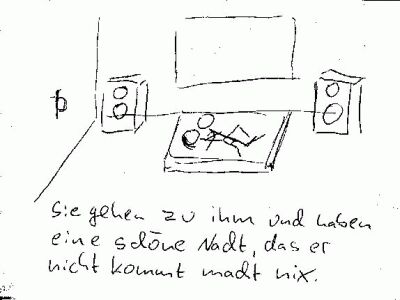 Sie gehen zu ihm und haben
eine schöne Nacht, das er
nicht kommt macht nix.